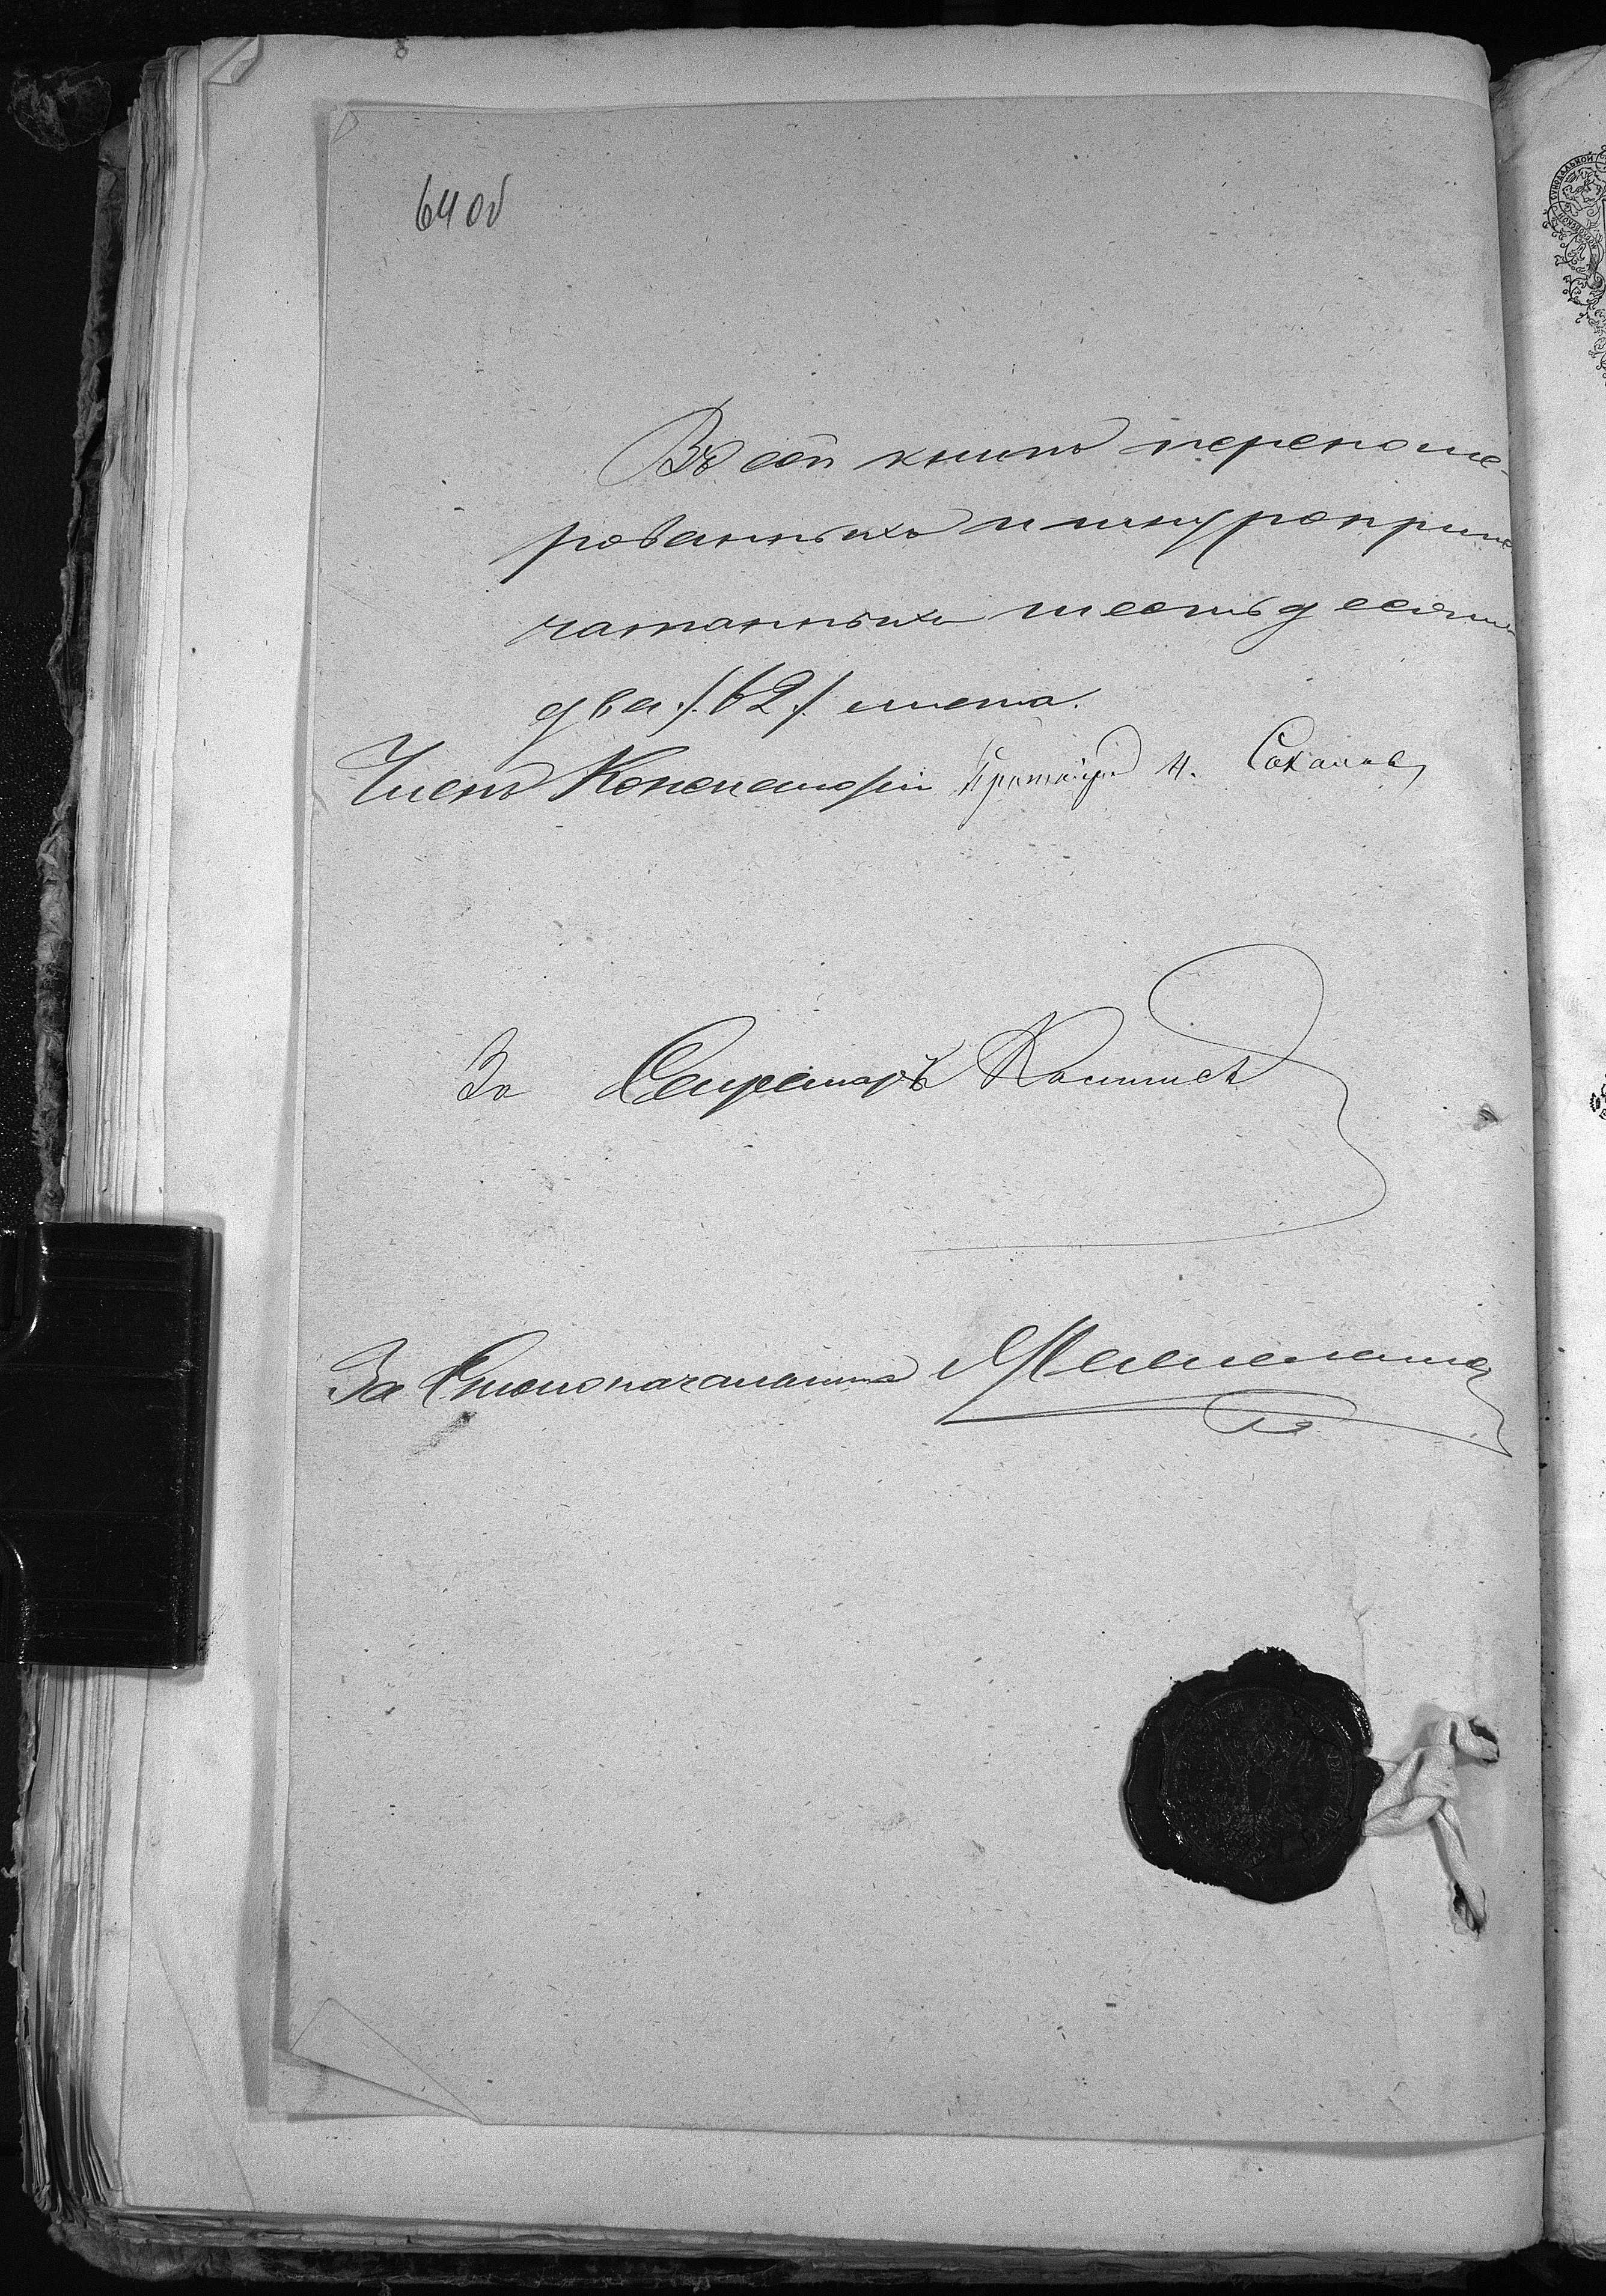 64 об
Въ сей книгѣ перенуме-
рованныхъ и шнуроприпе
чатанныхъ шестьдесятъ
два /62/ листа.
Членъ Консисторіи Протоіерей Н. Соколовъ
За Секретаря
За Столоначальника
СѴНОДАЛЬНОЙ